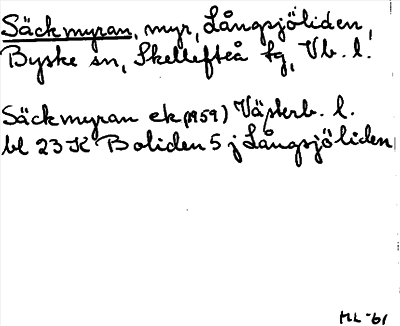 Säckmyran, myr, Långsjöliden,
Byske sn, Skellefteå tg, Vb. l.
Säckmyran ek (1959) Västerb. l.
bl 23 K Boliden 5 j Långsjöliden
ML -61